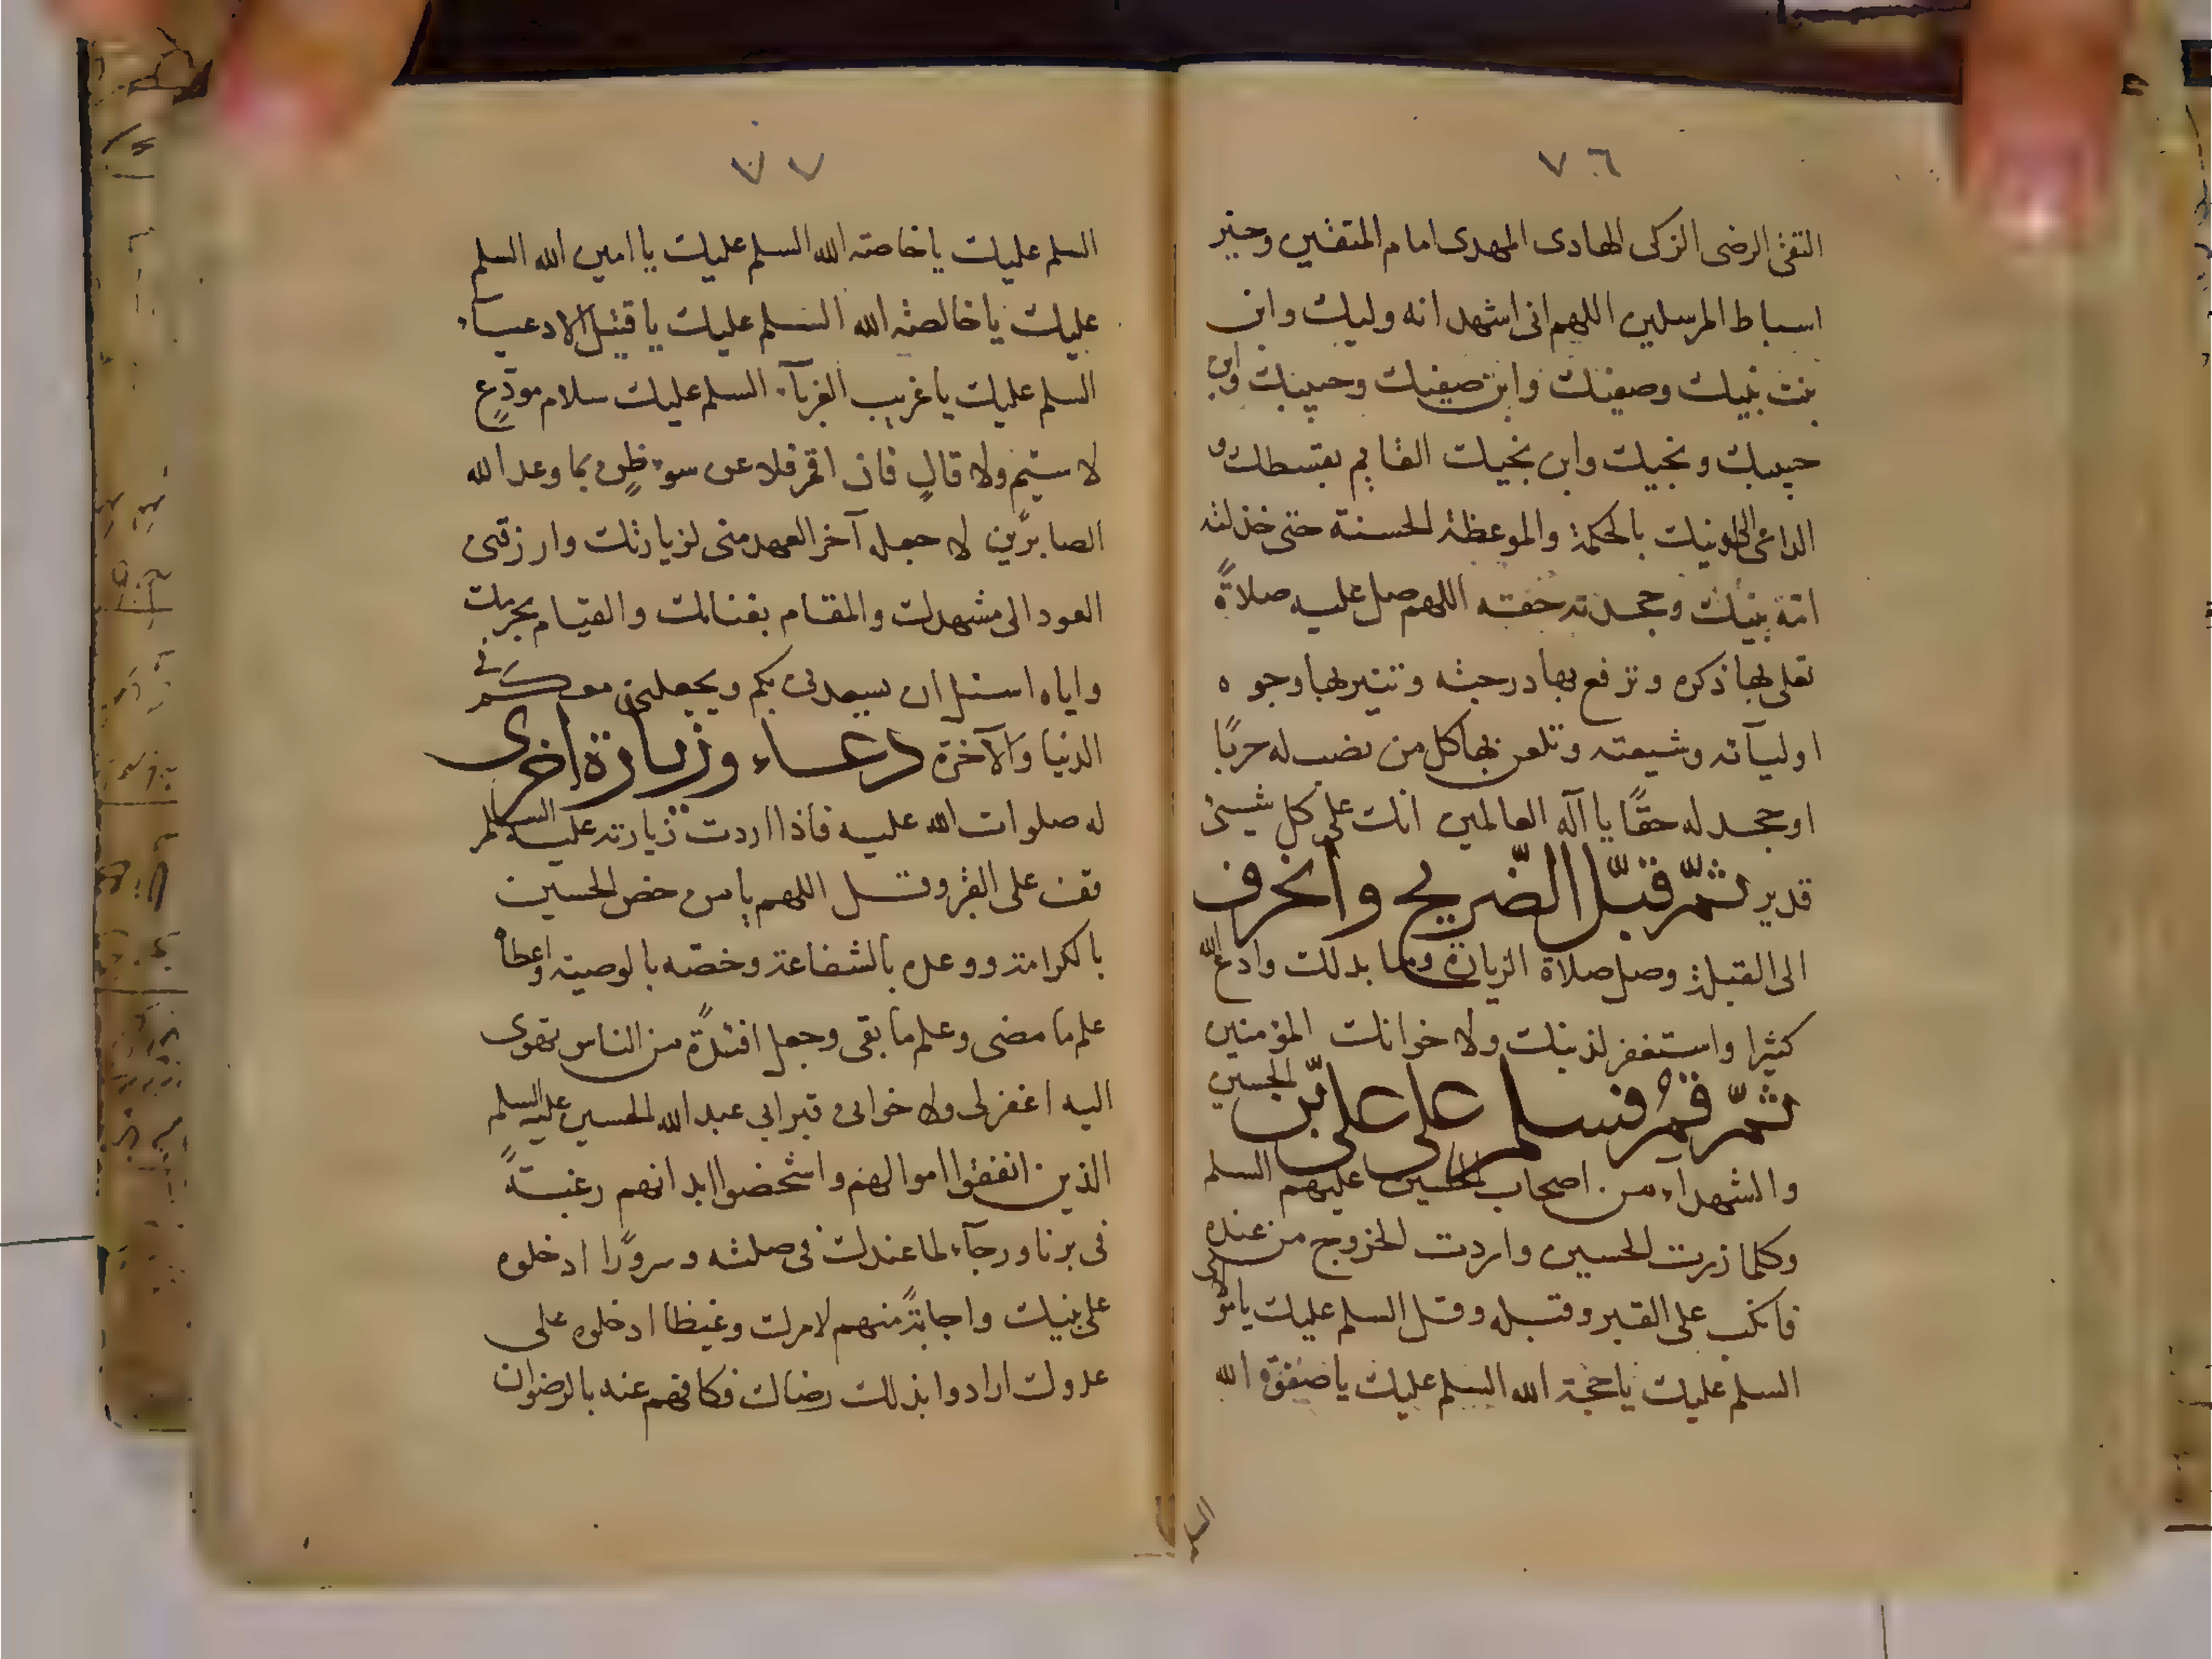 ٧٦
التقى الرضى الزكى الهادى المهدى امام المتقين وخير
اسباط المرسلين اللهم انى اشهد انه وليك وابن
بنت نبيك وصفيك وابن صفيك وحبيبك وابن
حبيبك ونجيك وابن نجيك القايم بقسطك و
الداعى الى دينك بالحكمة والموعظة الحسنة حتى خذلته
امة نبيك وجحدته حقه اللهم صل عليه صلاةً
تعلى بها ذكره وترفع بها درجته وتنير بها وجوه
اوليآئه وشيعته وتلعن بها كل من نصب له حربًا
او جحد له حقًا يا آله العالمين انك على كل شيئ
قدير ثمّ قبّل الضّريح وانحرف
الى القبلة وصل صلاة الزيارة وما بدلك وادع الله
كثيرا واستغفر لذنبك ولاخوانك المؤمنين
ثمّ قم فسلم على على بن الحسين
والشهداء من اصحاب الحسين عليهم السلم
وكلما زرت الحسين واردت الخروج من عنده
فانكب على القبر وقبله وقل السلم عليك يا مولاى
السلم عليك يا حجة الله السلم عليك يا صفوة الله
السلم
٧٧
السلم عليك يا خاصة الله السلم عليك يا امين الله السلم
عليك يا خالصة الله السلم عليك يا قتيل الادعياء
السلم عليك يا غريب الغربآء السلم عليك سلام مودّعٍ
لا سئم ولا قالٍ فان اقم فلا عن سوء ظنٍ بما وعد الله
الصابرين لا جعله آخر العهد منى لزيارتك وارزقنى
العود الى مشهدك والمقام بفنائك والقيام بحرمك
واياه اسئل ان يسعدنى بكم ويجعلنى معكم فى
الدنيا والآخرة دعاء وزيارة اخرى
له صلوات الله عليه فاذا اردت زيارته عليه السلام
فقف على القبر وقل اللهم يا من خص الحسين
بالكرامة ووعده بالشفاعة وخصه بالوصية واعطاه
علم ما مضى وعلم ما بقى وجعل افئدةً من الناس تهوى
اليه اغفر لى ولاخوانى وقبر ابى عبد الله الحسين عليه السلم
الذين انفقوا اموالهم واشخصوا ابدانهم رغبتةً
فى برنا ورجآء لما عندك فى صلته وسرورًا ادخلوه
على نبيك واجابةً منهم لامرك وغيظا ادخلوه على
عدوك ارادوا بذلك رضاك فكافهم عنه بالرضوان